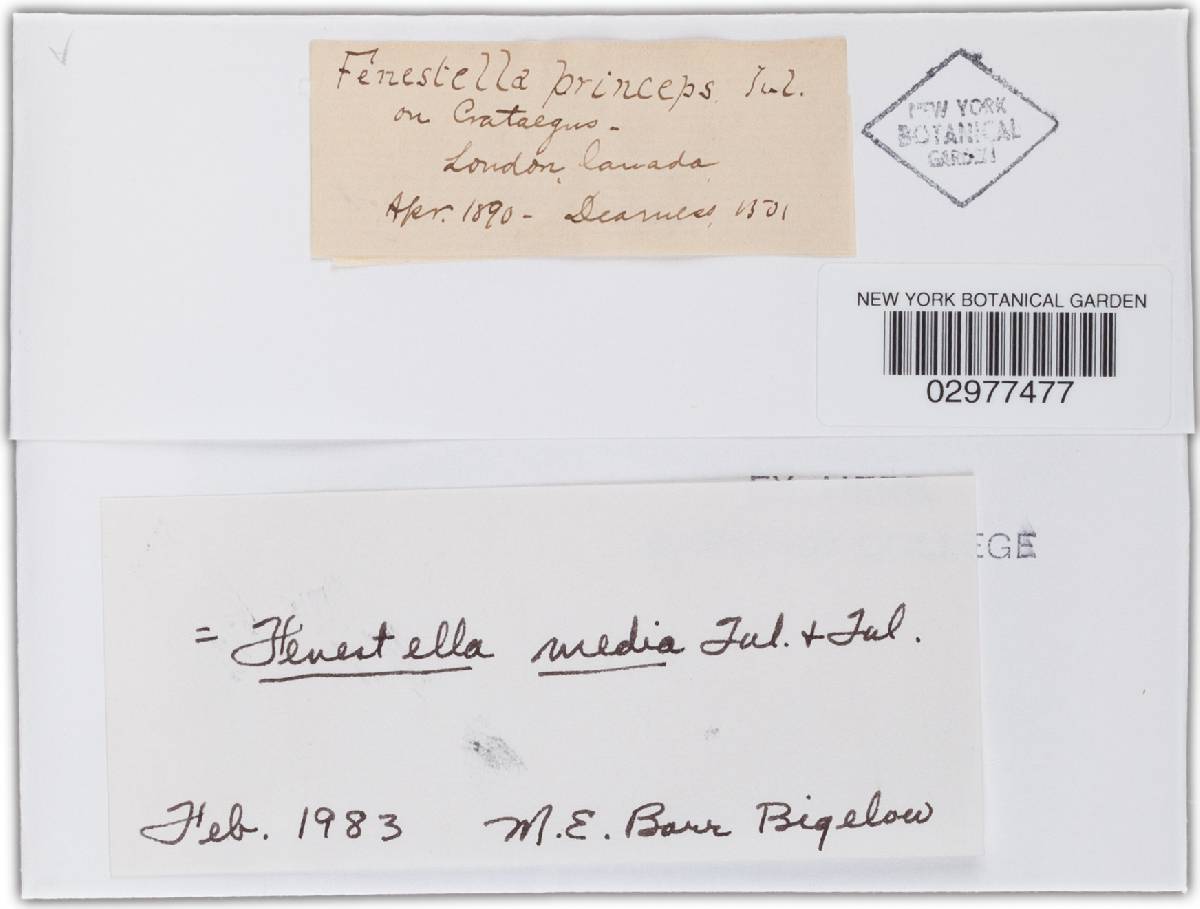 Fenestella princeps, Tul.
on Crataegus -
London, Canada,
Apr. 1890 - Dearness, 1501
NEW YORK
BOTANICAL
GARDEN
NEW YORK BOTANICAL GARDEN
02977477
= Fenestella media Tul. + Tul.
Feb. 1983 M.E. Barr Bigelow